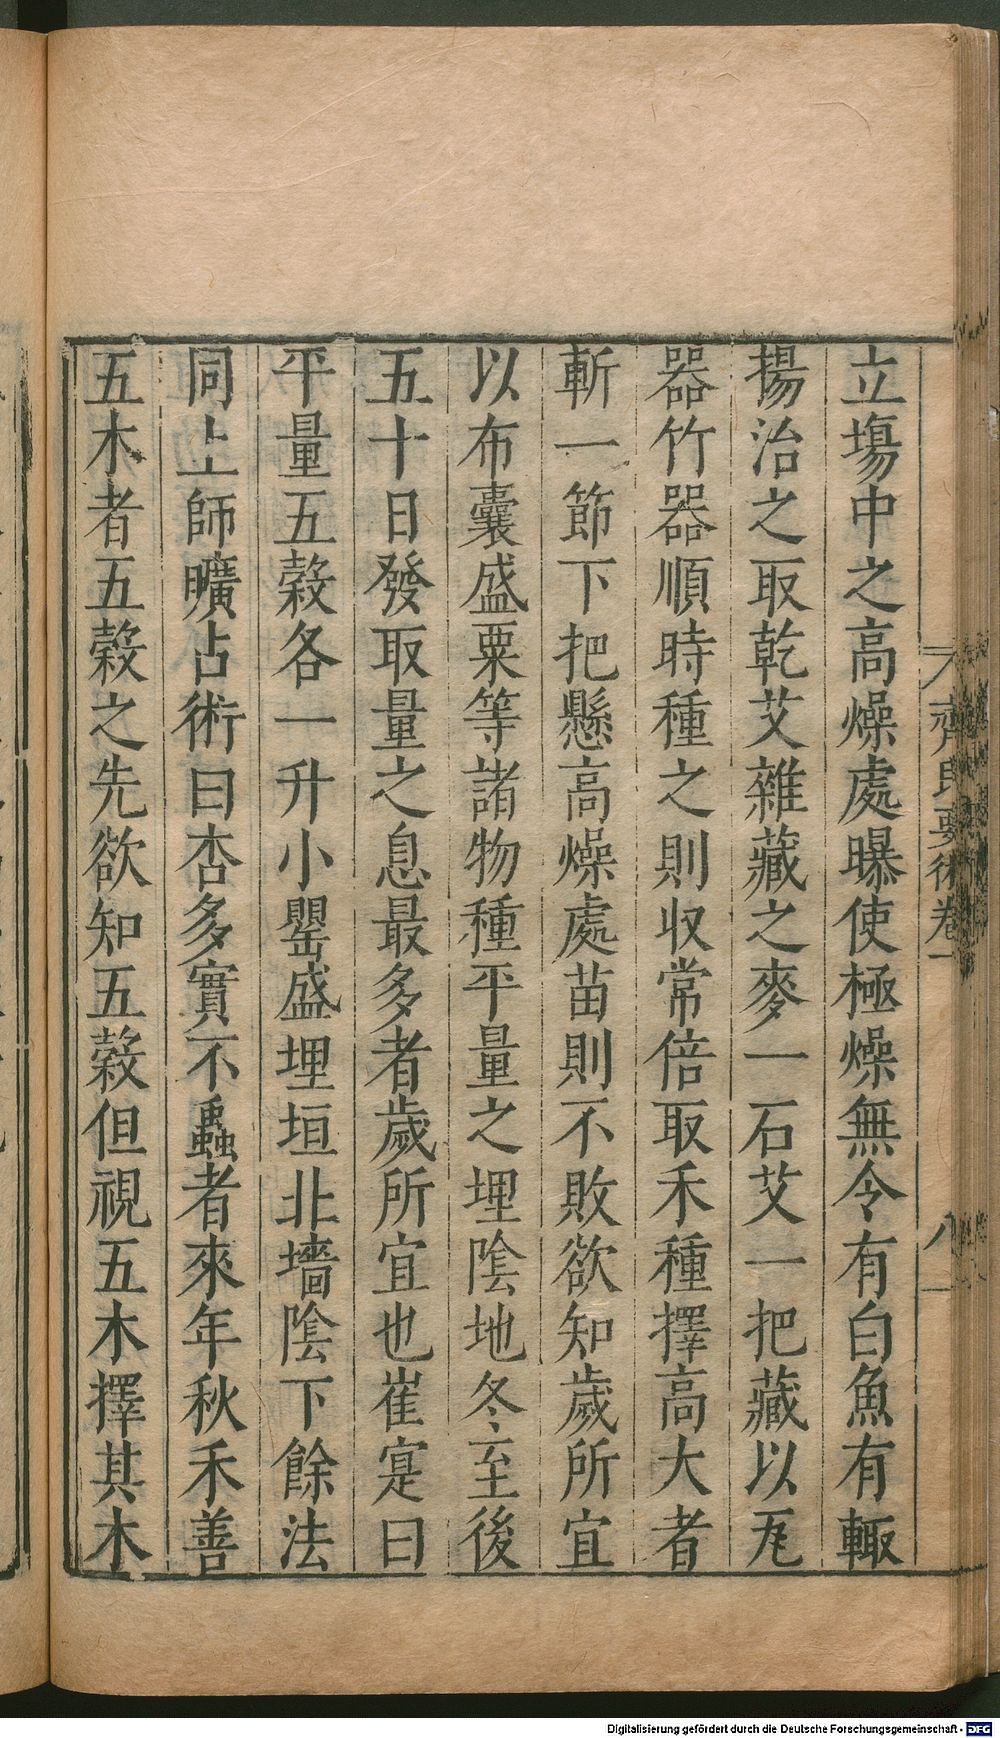 立塲中之高燥處曝使極燥無令有白魚有輙
揚治之取乾艾雜藏之麥一石艾一把藏以𤬦
器竹器順時種之則収常倍取禾種擇高大者
斬一節下把懸高燥處苗則不敗欲知歲所宜
以布囊盛粟等諸物種平量之埋陰地冬至後
五十日發取量之息最多者歲所宜也崔寔曰
平量五穀各一升小罌盛埋垣北墻陰下餘法
同上師曠占術曰杏多實不蟲者來年秋禾善
五木者五穀之先欲知五穀但視五木擇其木
齊民要術卷一
八
Digitalisierung gefördert durch die Deutsche Forschungsgemeinschaft - DFG